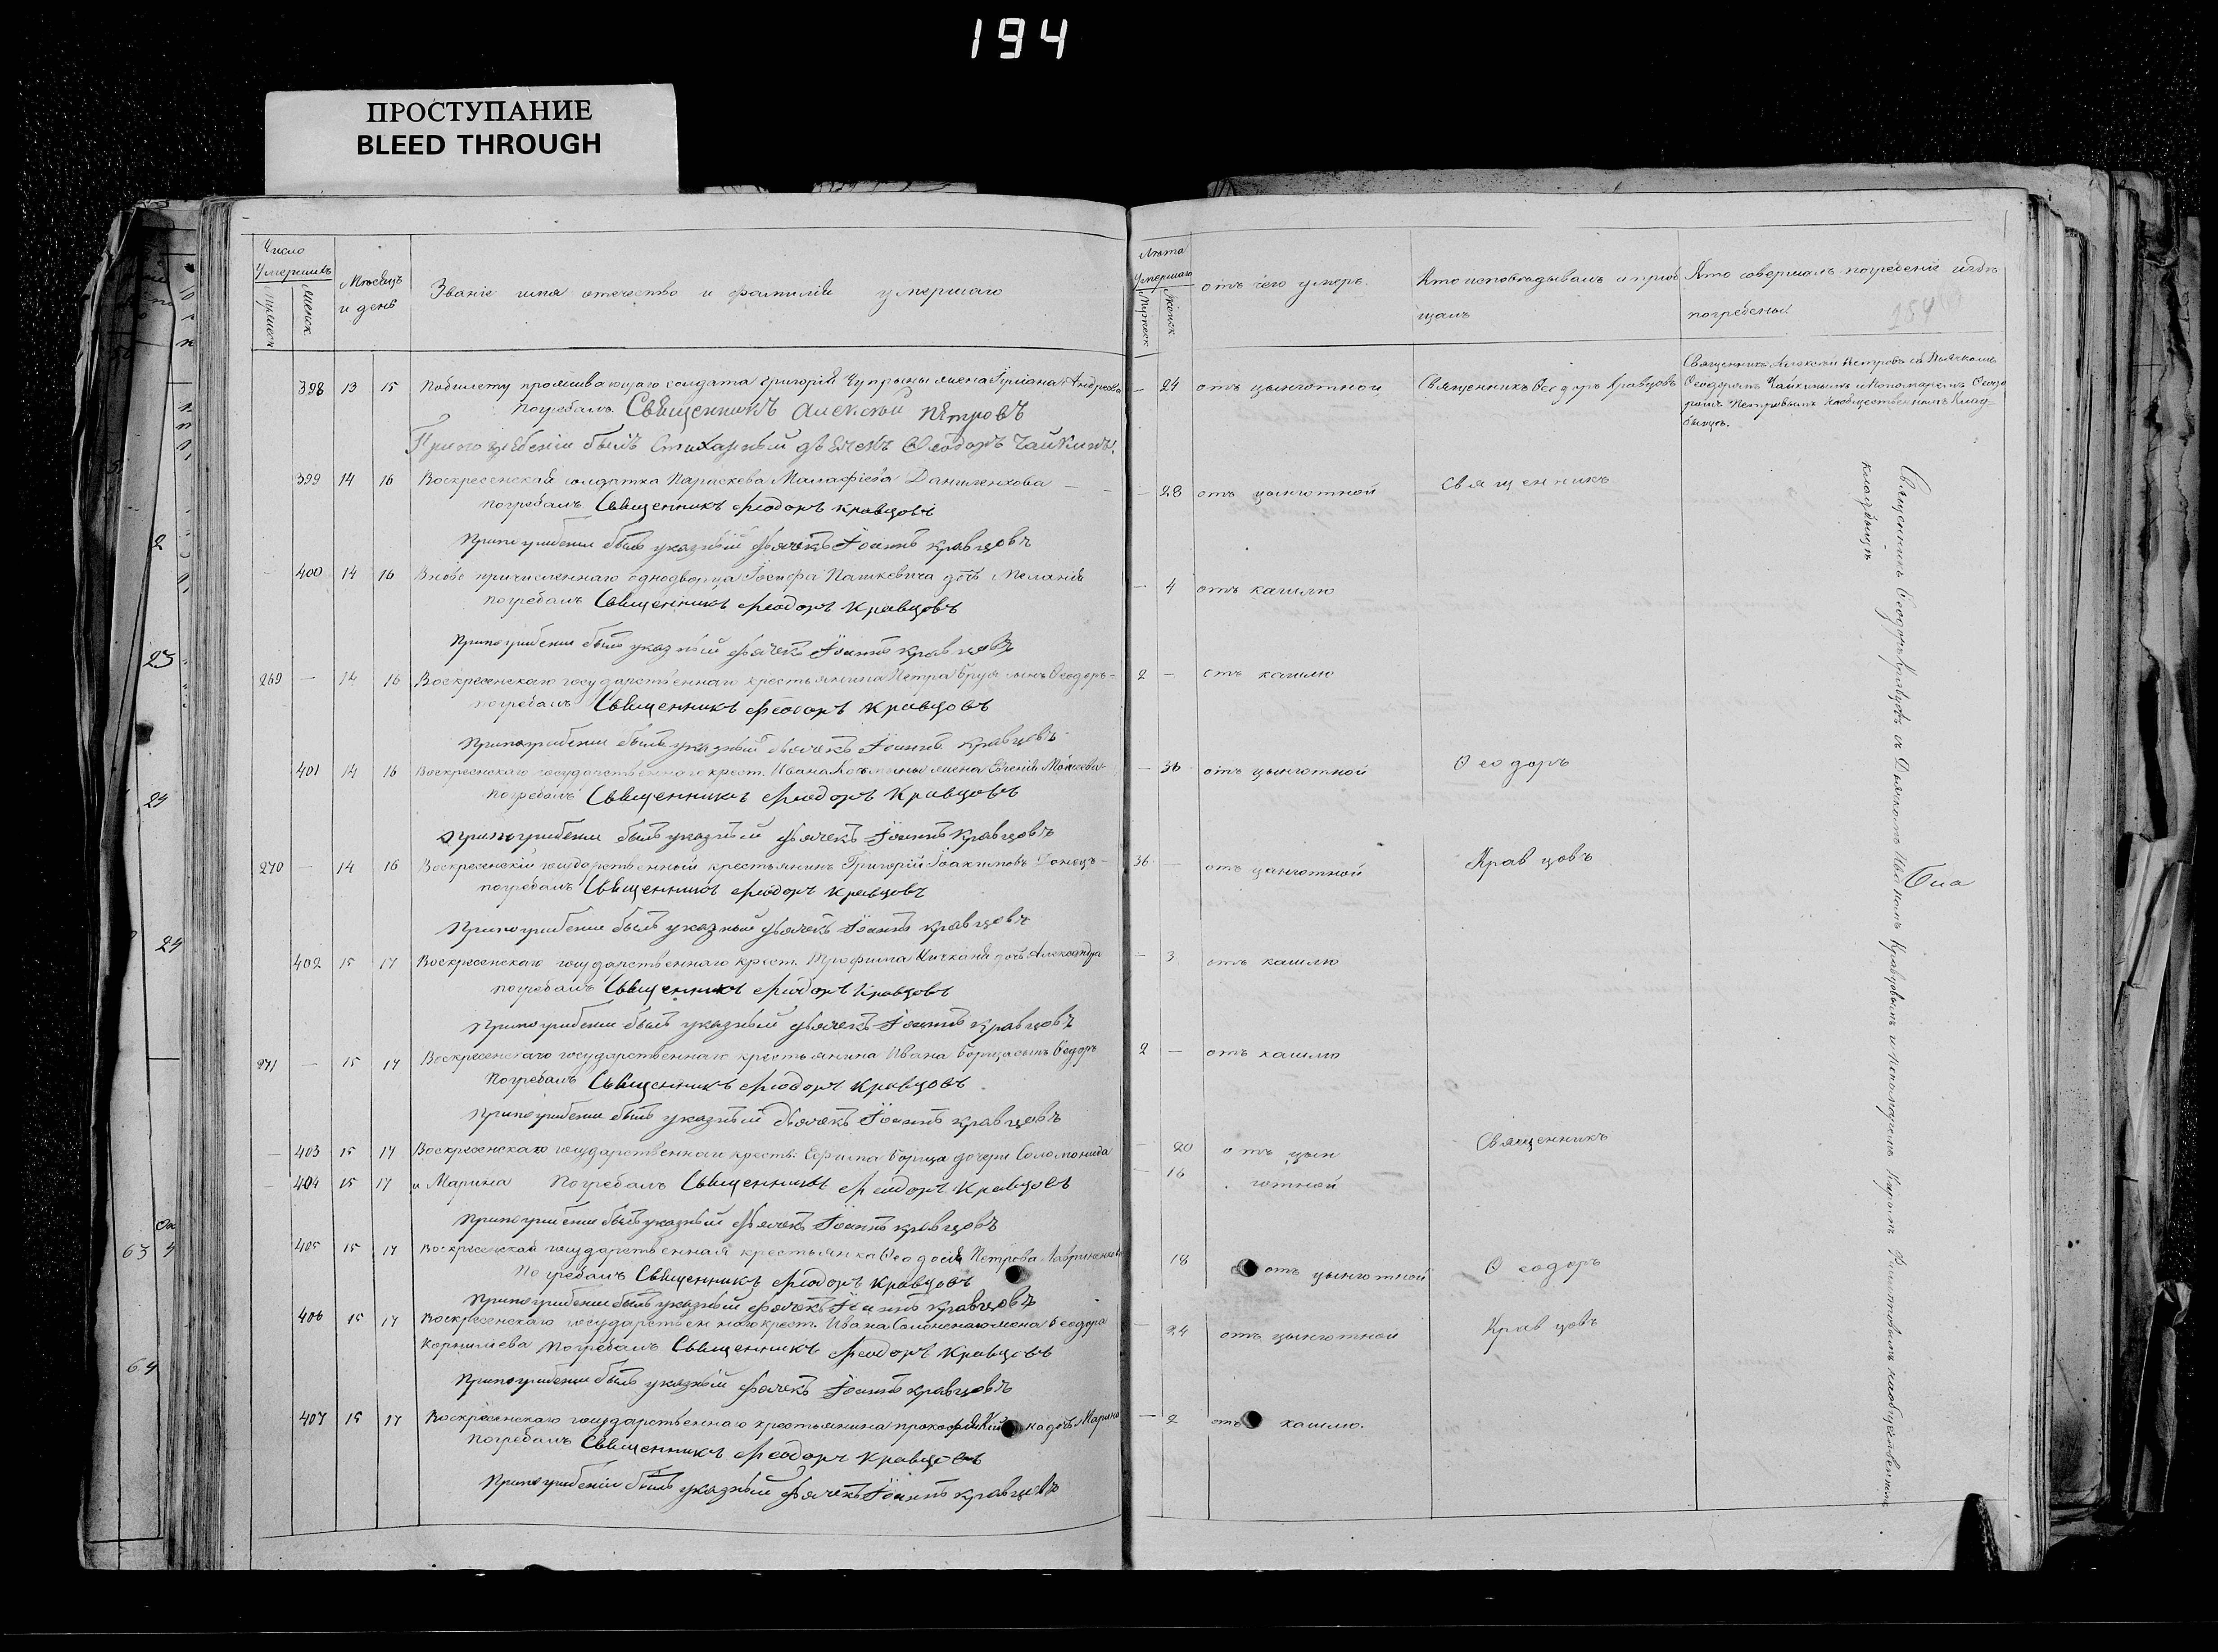 194
ПРОСТУПАНИЕ
BLEED THROUGH
Число
Умершихъ
Мѣсяцъ
и день
Званіе имя отечество и фамилія умершаго
мужеск
женск
398 13 15 Побилету проживающаго солдата Григорія Чупрыны жена Іуліана Андреева
Погребалъ Священникъ Алексѣй Петровъ
При погребеніи былъ Стихарный дьячекъ Ѳеодоръ Чайкинъ
399 14 16 Воскресенская солдатка Параскева Малафіева Даниленкова
погребалъ Священникъ Феодоръ Кравцовъ
При погрибении былъ указный дьячекъ Іоаннъ Кравцовъ
400 14 16 Вновь причисленнаго однодворца Іосифа Пашкевича дочь Меланія
погребалъ Священникъ Феодоръ Кравцовъ
При погрибении былъ указный дьячекъ Іоаннъ Кравцовъ
269 — 14 16 Воскресенскаго государственнаго крестьянина Петра сынъ Ѳеодоръ
погребалъ Священникъ Феодоръ Кравцовъ
При погрибении былъ указный дьячекъ Іоаннъ Кравцовъ
401 14 16 Воскресенскаго государственнаго крест. Ивана жена Евгенія Моисеева
погребалъ Священникъ Феодоръ Кравцовъ
При погрибении былъ указный дьячекъ Іоаннъ Кравцовъ
270 — 14 16 Воскресенскій государственный крестьянинъ Григорій Іоакимовъ Донецъ
погребалъ Священникъ Феодоръ Кравцовъ
При погрибении былъ указный дьячекъ Іоаннъ Кравцовъ
402 15 17 Воскресенскаго государственнаго крест. Трофима дочь Александра
погребалъ Священникъ Феодоръ Кравцовъ
При погрибении былъ указный дьячекъ Іоаннъ Кравцовъ
271 — 15 17 Воскресенскаго государственнаго крестьянина Ивана Борща сынъ Ѳедоръ
погребалъ Священникъ Феодоръ Кравцовъ
При погрибении былъ указный дьячекъ Іоаннъ Кравцовъ
403 15 17 Воскресенскаго государственнаго кресть. Ефима Борща дочери Соломонида
404 15 17 и Марина Погребалъ Священникъ Феодоръ Кравцовъ
При погрибении былъ указный дьячекъ Іоаннъ Кравцовъ
405 15 17 Воскресенская государственная крестьянка Ѳеодосія Петрова Лавриненкова
Погребалъ Священникъ Феодоръ Кравцовъ
При погрибении былъ указный дьячекъ Іоаннъ Кравцовъ
406 15 17 Воскресенскаго государственнаго крест. Ивана жена Ѳеодора
Корнилиева Погребалъ Священникъ Феодоръ Кравцовъ
При погрибении былъ указный дьячекъ Іоаннъ Кравцовъ
407 15 17 Воскресенскаго государственнаго крестьянина дочь Марина
погребалъ Священникъ Феодоръ Кравцовъ
При погрибении былъ указный дьячекъ Іоаннъ Кравцовъ
Лѣта
Умершаго
мужеск
женск
отъ чего умеръ.
Кто исповѣдывалъ и прiоб
щалъ
Кто совершалъ погребеніе и гдѣ
погребены
154
— 24 отъ цынготной Священникъ Ѳеодоръ Кравцовъ
Священникъ Алексѣй Петровъ съ Дьячкомъ
Ѳеодоромъ Чайкинымъ и Пономаремъ Ѳеодо
ромъ Петровымъ на общественномъ Клад-
бищѣ.
— 28 отъ цынготной Священникъ
— 4 отъ кашлю
2 — отъ кашлю
— 36 отъ цынготной Ѳеодоръ
36 — отъ цынготной Кравцовъ
— 3 отъ кашлю
2 — отъ кашлю
20 отъ цын Священникъ
— 16 готной
18 отъ цынготной Ѳеодоръ
24 отъ цынготной Кравцовъ
— 2 отъ кашлю.
Священникъ Ѳеодоръ Кравцовъ съ Дьячкомъ Иваномъ Кравцовымъ и Пономаремъ на общественномъ
кладбищѣ
2
23
24
24
63
64